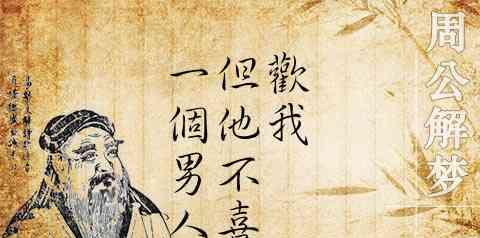 周公解梦
一個男人
但他不喜
歡我